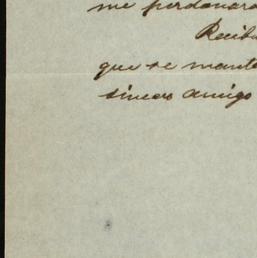 me perdonara
Reciba
que se mante
sincero amigo